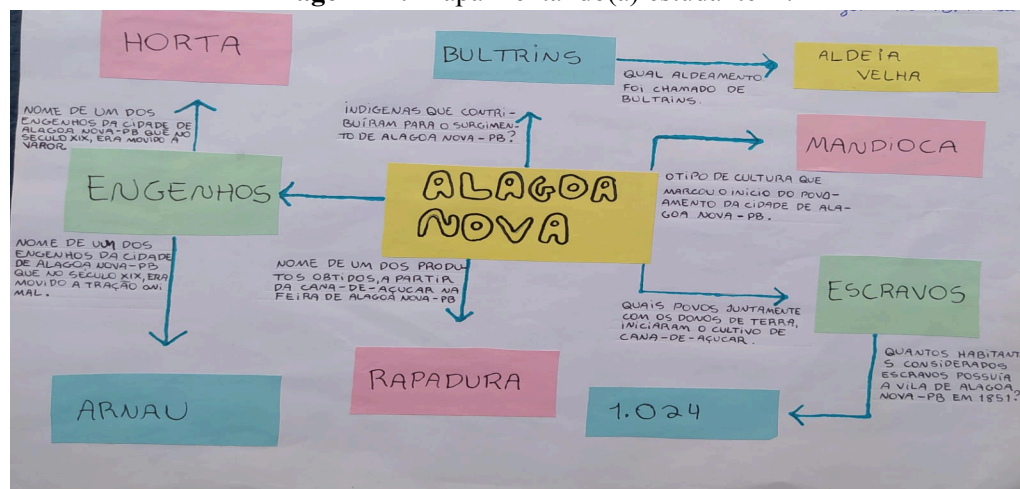 HORTA
BULTRINS
ALDEIA
VELHA
QUAL ALDEAMENTO
FOI CHAMADO DE
BULTRINS.
NOME DE UM DOS
ENGENHOS DA CIDADE DE
ALAGOA NOVA-PB QUE NO
SÉCULO XIX, ERA MOVIDO A
VAPOR.
INDIGENAS QUE CONTRI-
BUÍRAM PARA O SURGIMEN-
TO DE ALAGOA NOVA-PB?
MANDIOCA
ENGENHOS
ALAGOA
NOVA
OTIPO DE CULTURA QUE
MARCOU O INÍCIO DO POVO-
AMENTO DA CIDADE DE ALA-
GOA NOVA-PB.
NOME DE UM DOS
ENGENHOS DA CIDADE
DE ALAGOA NOVA-PB
QUE NO SÉCULO XIX, ERA
MOVIDO A TRAÇÃO ANI
MAL.
NOME DE UM DOS PRODU
TOS OBTIDOS, A PARTIR
DA CANA-DE-AÇUCAR NA
FEIRA DE ALAGOA NOVA-PB
ESCRAVOS
QUAIS POVOS JUNTAMENTE
COM OS DONOS DE TERRA,
INICIARAM O CULTIVO DE
CANA-DE-AÇUCAR.
QUANTOS HABITANT
S CONSIDERADOS
ESCRAVOS POSSUIA
A VILA DE ALAGOA
NOVA-PB EM 1851?
RAPADURA
ARNAU
1.024